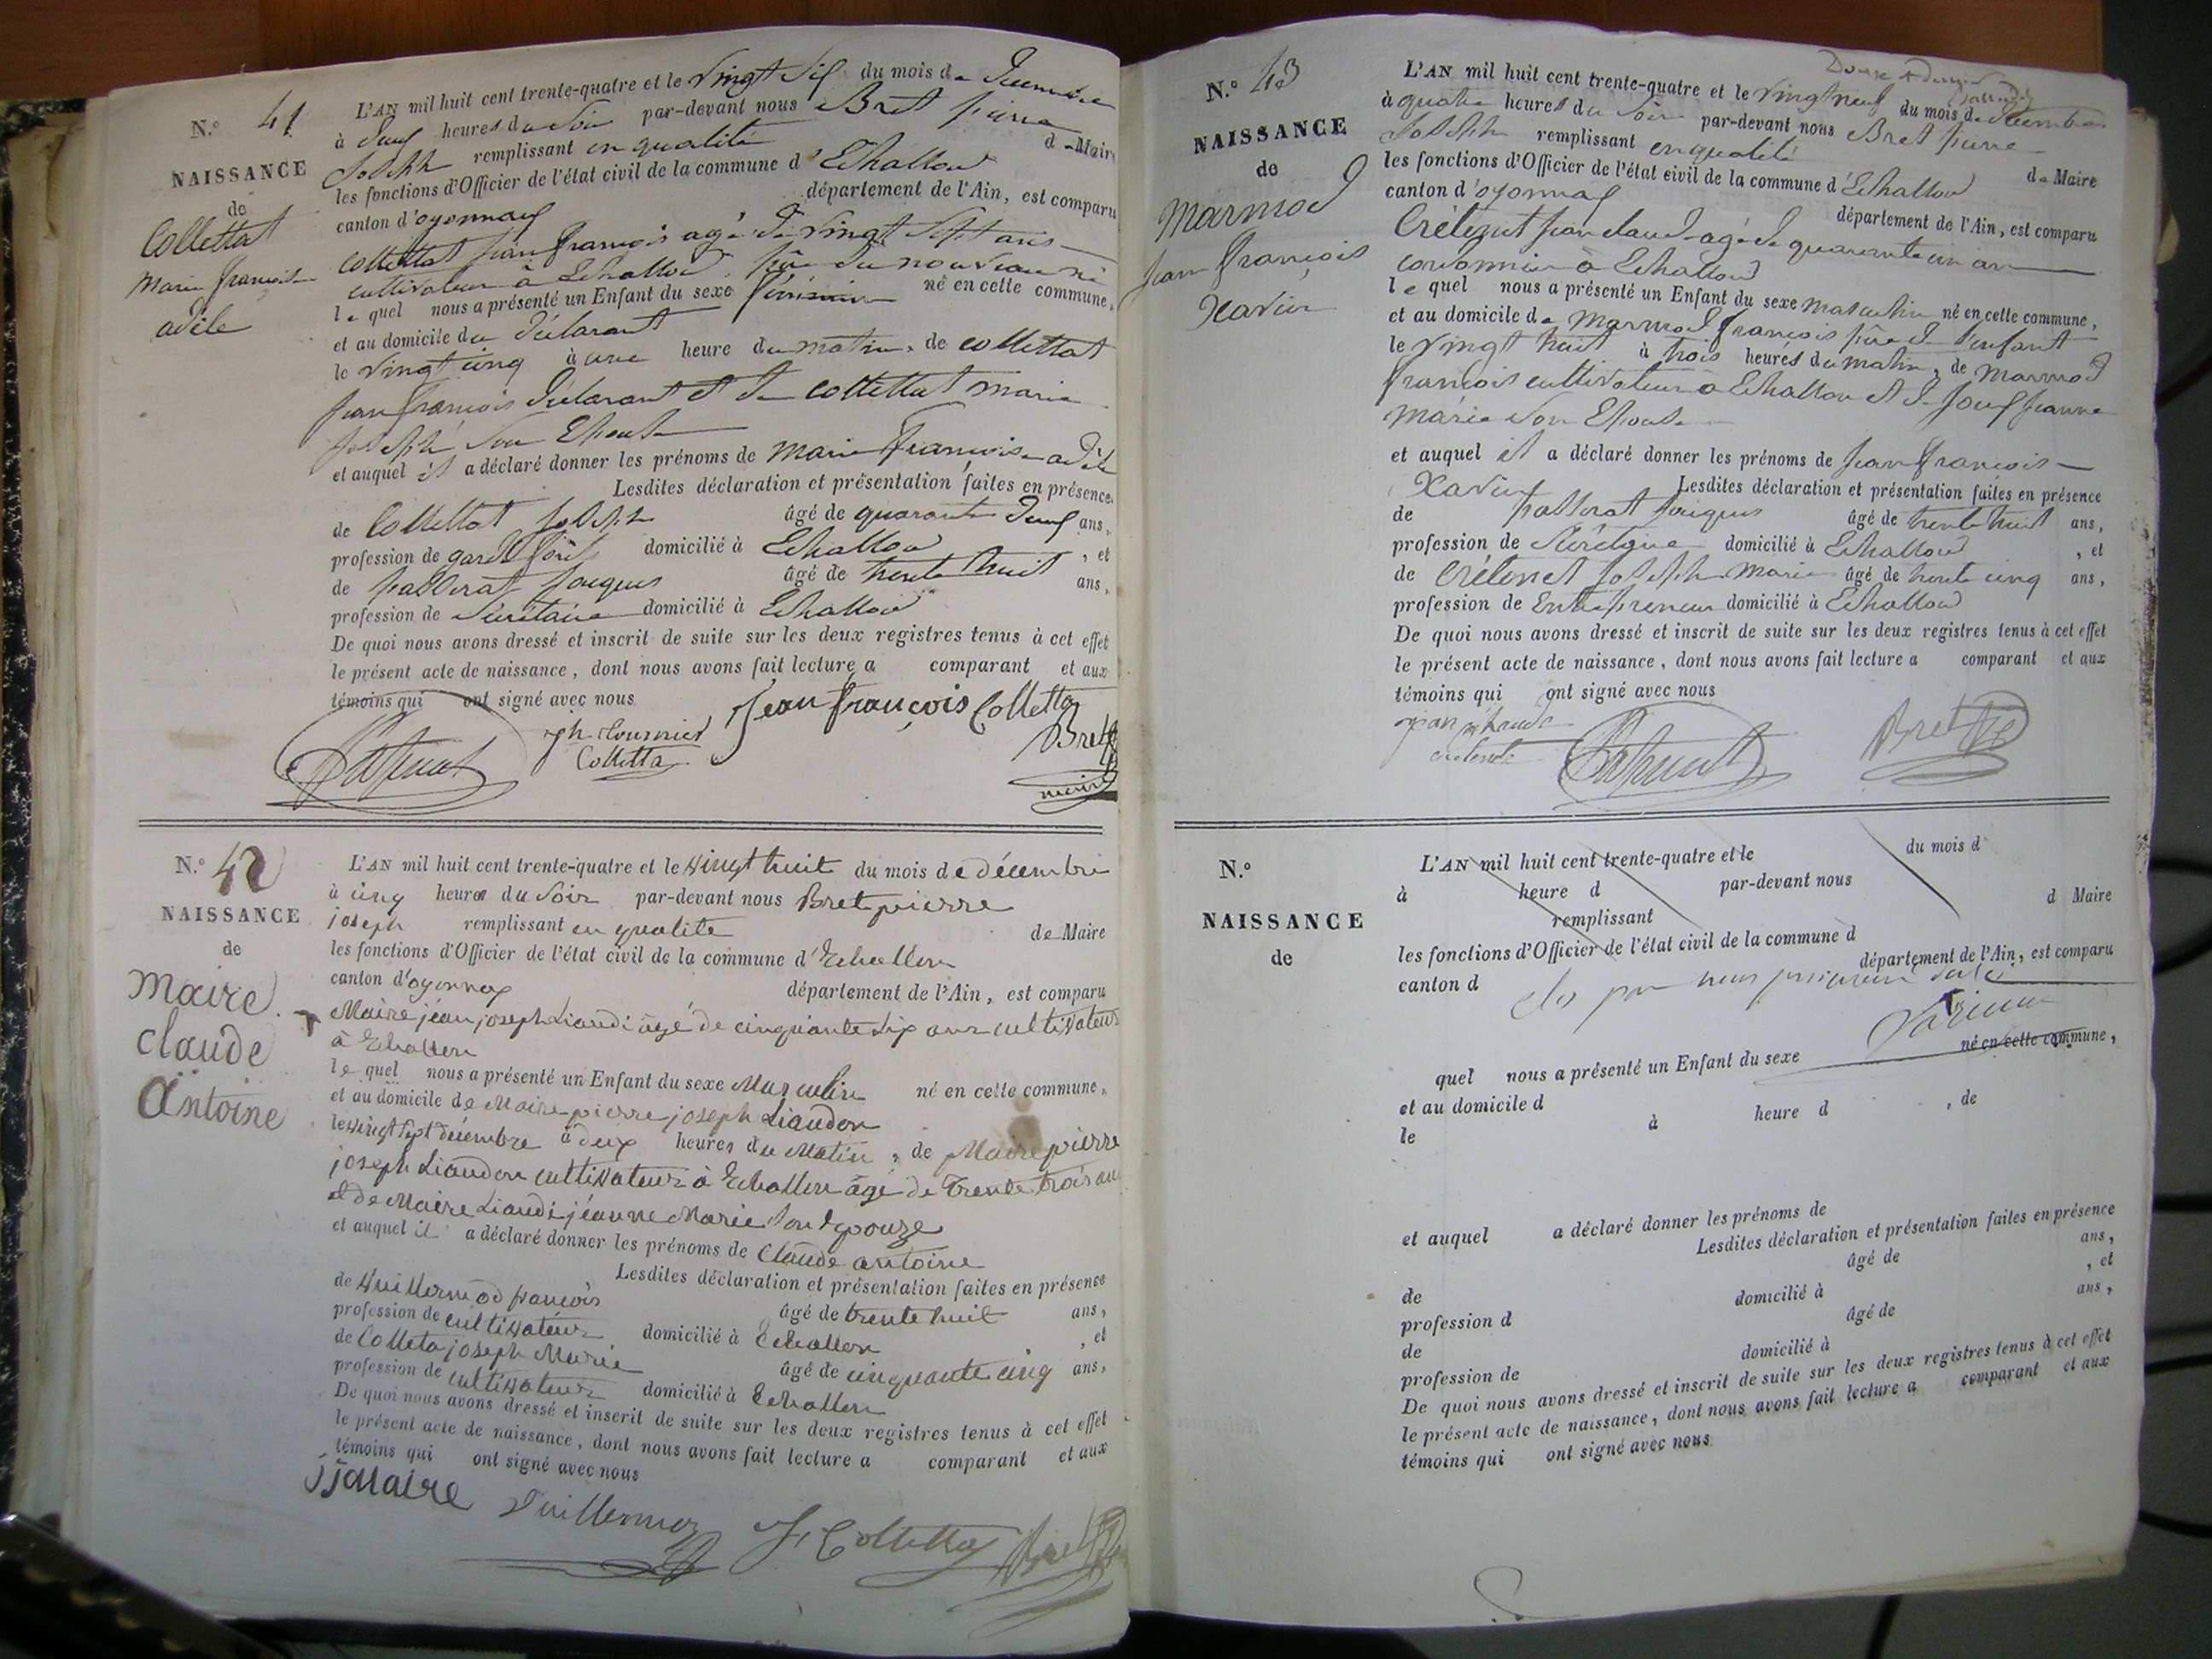 N.° 41
NAISSANCE
de
Collettat
marie françoise
adèle
L'AN mil huit cent trente-quatre et le vingt six du mois de Décembre
à deux heures du soir par-devant nous Bret pierre
Joseph remplissant en qualité de Maire
les fonctions d'Officier de l'état civil de la commune d'Echallon
canton d'oyonnax département de l'Ain, est comparu
Collettat jean françois agé de vingt sept ans
cultivateur à Echallon, père du nouveau né
le quel nous a présenté un Enfant du sexe féminin né en cette commune,
et au domicile du déclarant
le vingt cinq à une heure du matin, de collettat
jean françois déclarant et de collettat marie
joseph son Epouse
et auquel il a déclaré donner les prénoms de marie françoise adèle
Lesdites déclaration et présentation faites en présence
de Collettat joseph âgé de quarante deux ans,
profession de garde forêt domicilié à Echallon, et
de passerat jacques âgé de trente huit ans,
profession de Secrétaire domicilié à Echallon
De quoi nous avons dressé et inscrit de suite sur les deux registres tenus à cet effet
le présent acte de naissance, dont nous avons fait lecture a comparant et aux
témoins qui ont signé avec nous
jean françois Colletta
jh
Colletta
Bret
maire
N.° 42
NAISSANCE
de
Maire
claude
Antoine
L'AN mil huit cent trente-quatre et le vingt huit du mois de décembre
à cinq heures du soir par-devant nous Bret pierre
joseph remplissant en qualité de Maire
les fonctions d'Officier de l'état civil de la commune d'Echallon
canton d'oyonnax département de l'Ain, est comparu
Maire jean joseph Liaudi âgé de cinquante six ans cultivateur
à Echallon
le quel nous a présenté un Enfant du sexe Masculin né en cette commune,
et au domicile de Maire pierre joseph Liaudon
le vingt sept décembre à deux heures du Matin, de Maire pierre
joseph Liaudon cultivateur à Echallon âgé de trente trois ans
et de Maire Liaudi jeanne Marie son epouze
et auquel il a déclaré donner les prénoms de Claude antoine
Lesdites déclaration et présentation faites en présence
de Guillermod françois âgé de trente huit ans,
profession de cultivateur domicilié à Echallon, et
de Colleta joseph Marie âgé de cinquante cinq ans,
profession de cultivateur domicilié à Echallon
De quoi nous avons dressé et inscrit de suite sur les deux registres tenus à cet effet
le présent acte de naissance, dont nous avons fait lecture a comparant et aux
témoins qui ont signé avec nous
jjMaire Guillermoz J, Colletta Bret
N.° 43
NAISSANCE
de
Marmod
jean françois
Xavier
L'AN mil huit cent trente-quatre et le vingt neuf du mois de Décembre
à quatre heures du soir par-devant nous Bret pierre
Joseph remplissant en qualité de Maire
les fonctions d'Officier de l'état civil de la commune d'Echallon
canton d'oyonnax département de l'Ain, est comparu
Crétenet jean claude agé de quarante un an
cordonnier à Echallon
le quel nous a présenté un Enfant du sexe masculin né en cette commune,
et au domicile de marmod françois père de l'enfant
le vingt huit à trois heures du matin, de marmod
françois cultivateur à Echallon et de joux jeanne
marie son Epouse
et auquel il a déclaré donner les prénoms de jean françois
Xavier Lesdites déclaration et présentation faites en présence
de passerat jacques âgé de trente huit ans,
profession de domicilié à Echallon, et
de Crétenet joseph marie âgé de trente cinq ans,
profession de Entrepreneur domicilié à Echallon
De quoi nous avons dressé et inscrit de suite sur les deux registres tenus à cet effet
le présent acte de naissance, dont nous avons fait lecture a comparant et aux
témoins qui ont signé avec nous
jean claude
Bret
N.°
NAISSANCE
de
L'AN mil huit cent trente-quatre et le du mois d
à heure d par-devant nous
remplissant d Maire
les fonctions d'Officier de l'état civil de la commune d
canton d département de l'Ain, est comparu
clos par nous
quel nous a présenté un Enfant du sexe né en cette commune,
et au domicile d
le à heure d , de
et auquel a déclaré donner les prénoms de
Lesdites déclaration et présentation faites en présence
de âgé de ans,
profession d domicilié à , et
de âgé de ans,
profession de domicilié à
De quoi nous avons dressé et inscrit de suite sur les deux registres tenus à cet effet
le présent acte de naissance, dont nous avons fait lecture a comparant et aux
témoins qui ont signé avec nous